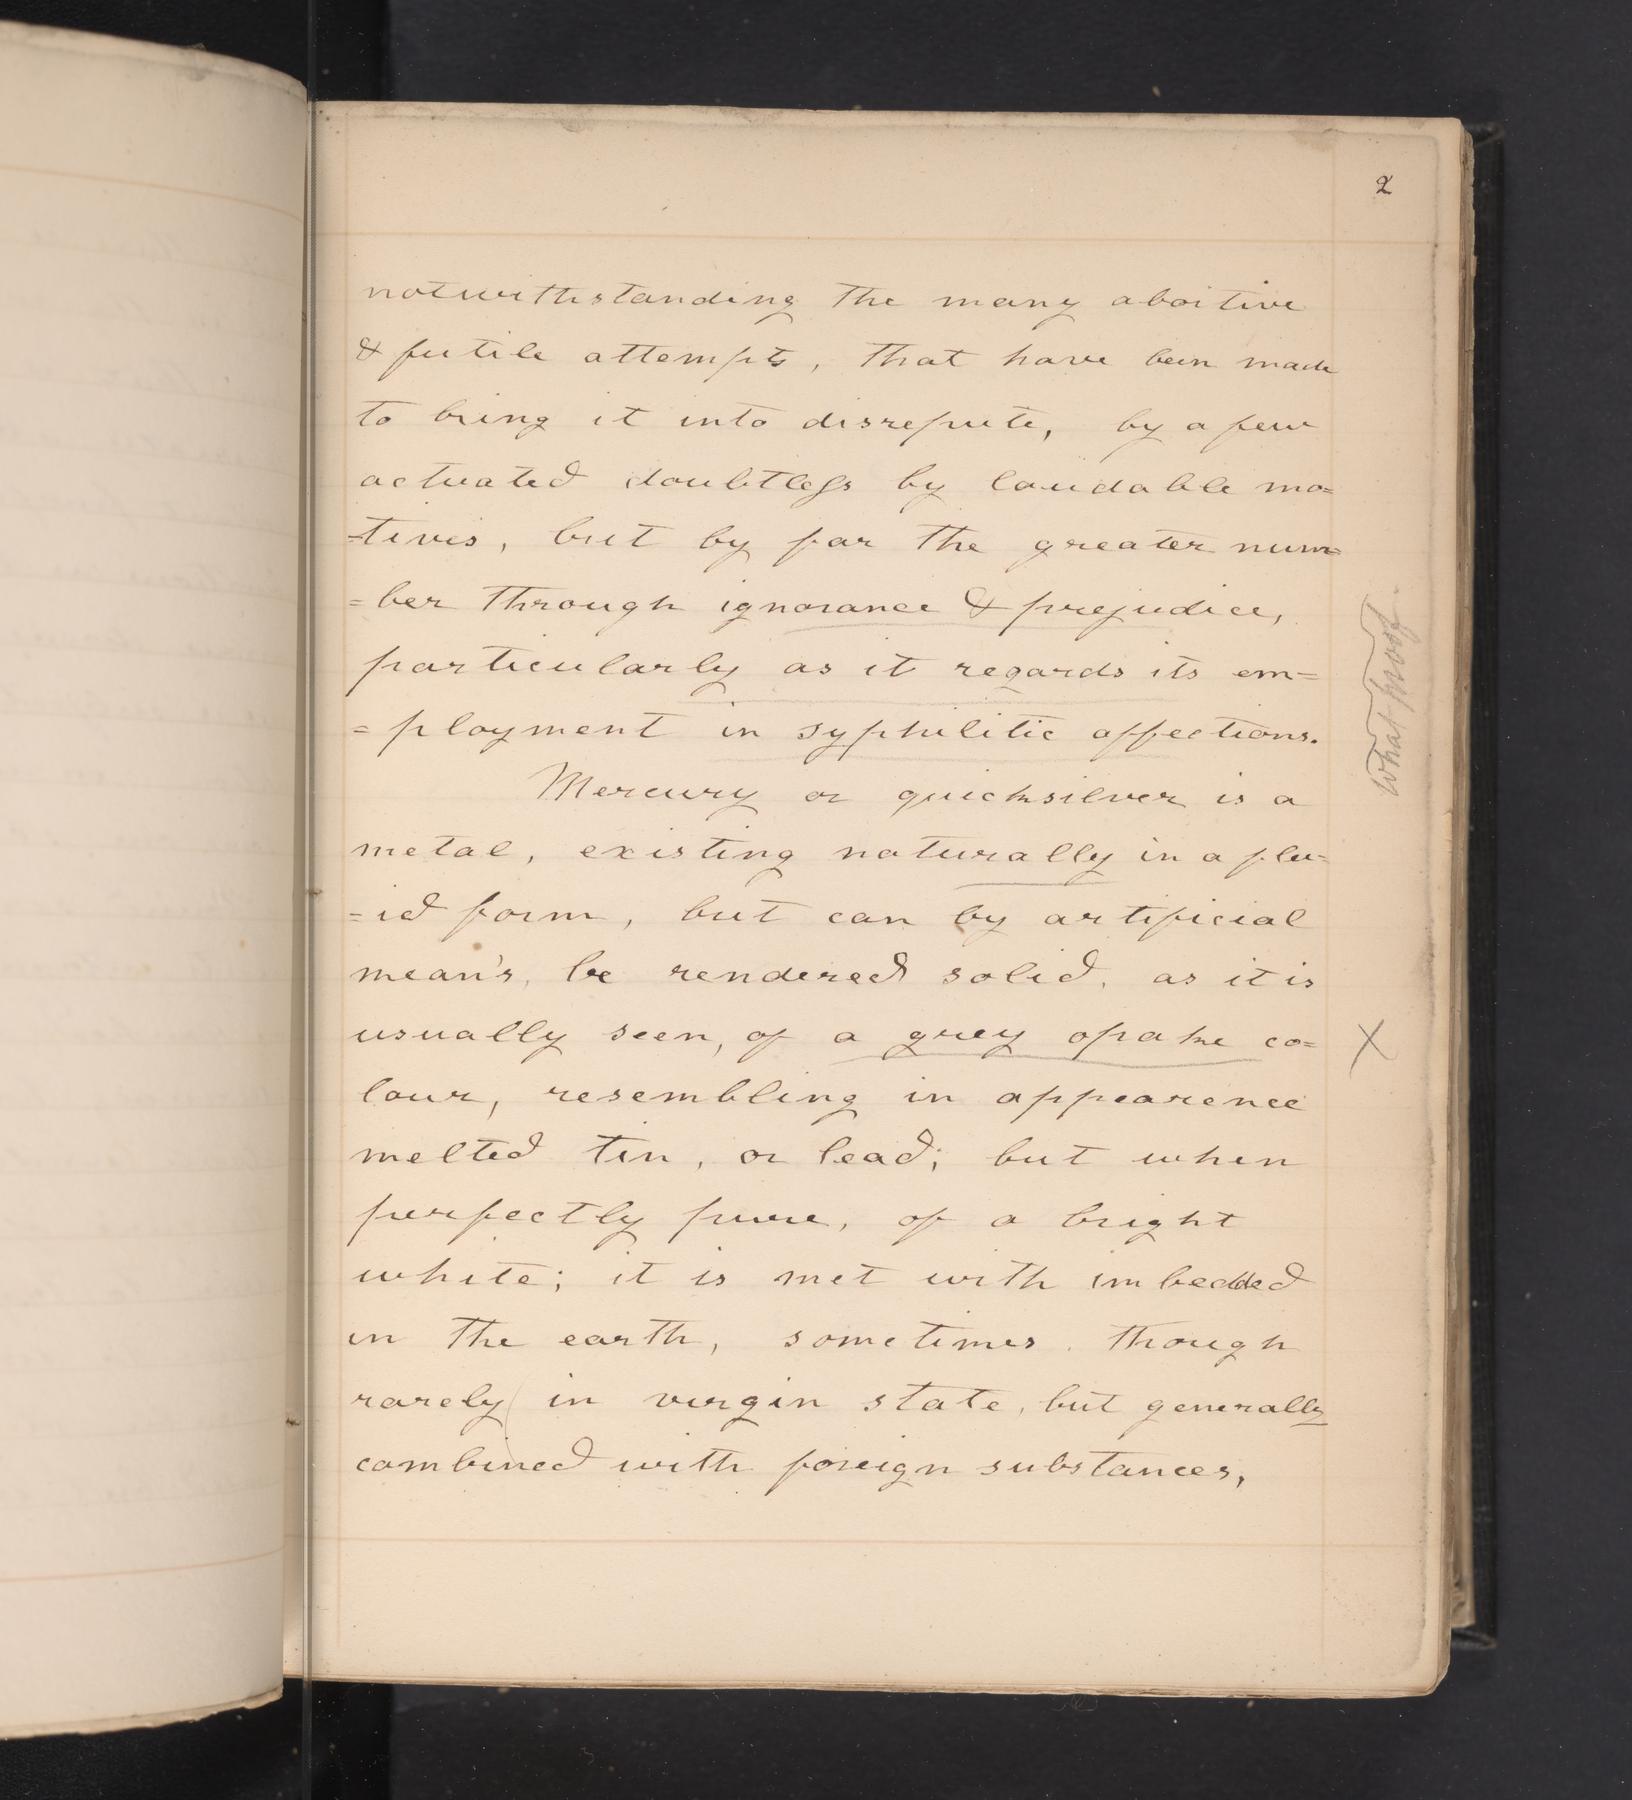 2
notwithstanding the many abortive
& futile attempts, that have been made
to bring it into disrepute, by a few
actuated doubtless by laudable mo=
=tives, but by far the greater num=
=ber through ignorance & prejudice,
particularly as it regards its em=
=ployment in syphilitic affections.
What proof.
Mercury or quicksilver is a
metal, existing naturally in a flu=
=id form, but can by artificial
mean's, be rendered solid, as it is
usually seen, of a grey opake co=
X
lour, resembling in appearence
melted tin, or lead; but when
perfectly pure, of a bright
white; it is met with imbedded
in the earth, sometimes, though
rarely in virgin state, but generally
combined with foreign substances,